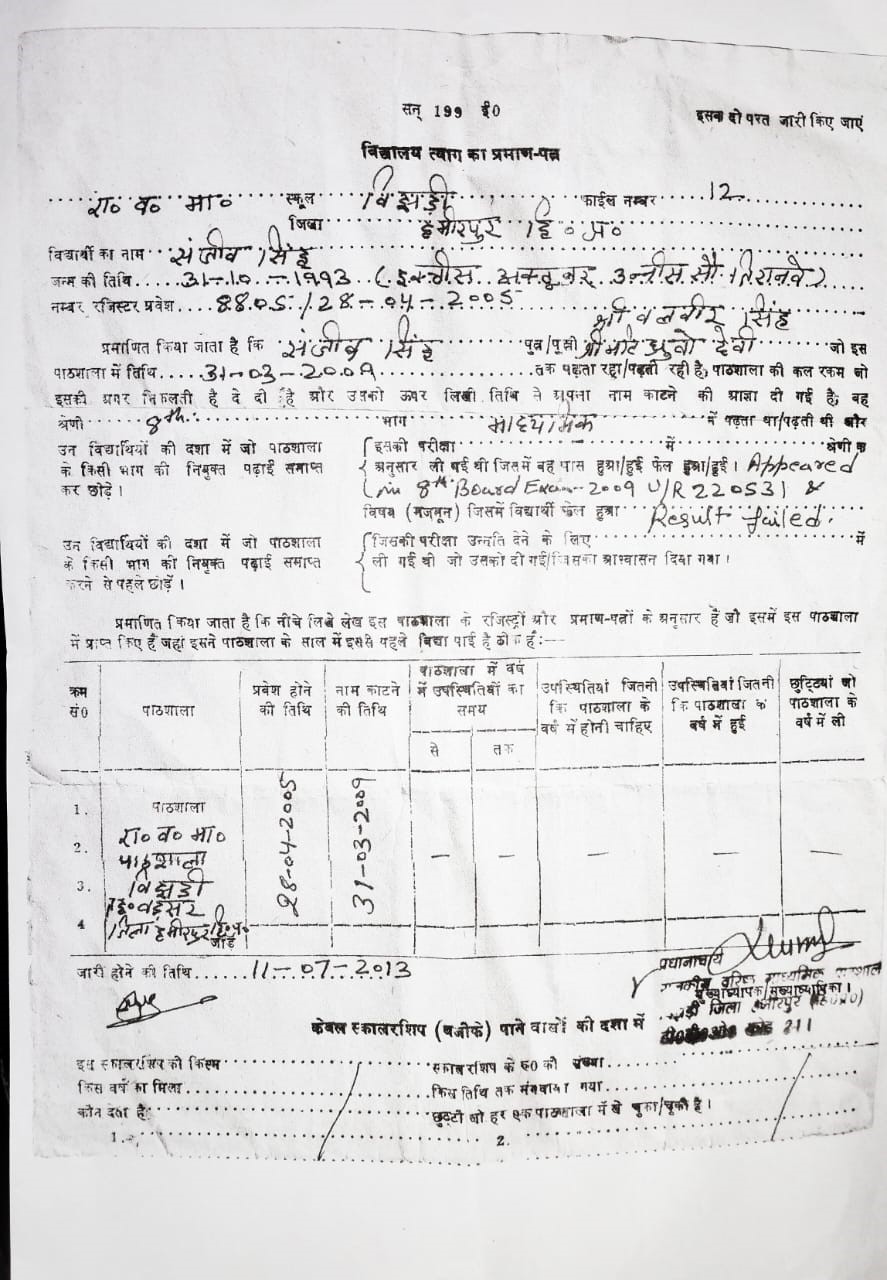 सन् 199 ई0
इसक दो परत जारी किए जाएं
विद्यालय त्याग का प्रमाण-पत्र
रा० व० मा० स्कूल विझड़ी फाईल नम्बर 12
जिला हमीरपुर हि० प्र०
विद्यार्थी का नाम संजीव सिंह
जन्म की तिथि 31-10-1993 (इकत्तीस अक्तूबर उन्नीस सौ तिरानवे)
नम्बर रजिस्टर प्रवेश 8805/28-04-2005
श्री बलवीर सिंह
प्रमाणित किया जाता है कि संजीव सिंह पुत्र/पुत्री श्रीमति देवी जो इस
पाठशाला में तिथि 31-03-2009 तक पढ़ता रहा/पढ़ती रही है, पाठशाला की कल रकम जो
इसकी अगर निकलती है दे दी है और उसको ऊपर लिखी तिथि से अपना नाम काटने की आज्ञा दी गई है, वह
श्रेणी 8th भाग माध्यमिक में पढ़ता था/पढ़ती थी और
उन विद्यार्थियों की दशा में जो पाठशाला इसकी परीक्षा में श्रेणी क
के किसी भाग की नियुक्त पढ़ाई समाप्त अनुसार ली गई थी जिसमें वह पास हुआ/हुई फेल हुआ/हुई। Appeared
कर छोड़े। in 8th Board Exam-2009 U/R 220531 &
विषय (मजमून) जिसमें विद्यार्थी फेल हुआ Result failed.
उन विद्यार्थियों की दशा में जो पाठशाला जिसकी परीक्षा उन्नति देने के लिए में
के किसी भाग की नियुक्त पढ़ाई समाप्त ली गई थी जो उसको दी गई/जिसका आश्वासन दिया गया।
करने से पहले छोड़ें।
प्रमाणित किया जाता है कि नीचे लिखे लेख इस पाठशाला के रजिस्ट्रों और प्रमाण-पत्रों के अनुसार हैं जो इसमें इस पाठशाला
में प्राप्त किए हैं जहां इसने पाठशाला के साल में इससे पहले विद्या पाई है ठीक हैं:—
क्रम सं0 पाठशाला प्रवेश होने की तिथि नाम काटने की तिथि पाठशाला में वर्ष में उपस्थितियों का समय उपस्थितियां जितनी कि पाठशाला के वर्ष में होनी चाहिए उपस्थितियां जितनी कि पाठशाला के वर्ष में हुई छुट्टियां जो पाठशाला के वर्ष में ली
से तक
1. पाठशाला 28-04-2005 31-03-2009
रा० व० मा०
2. पाठशाला — — — — —
3. विझड़ी
तह० बड़सर
4 जिला हमीरपुर हि०प्र०
जोड़
जारी होने की तिथि 11-07-2013
प्रधानाचार्य
राजकीय वरिष्ठ माध्यमिक पाठशाला
मुख्याध्यापक/मुख्याध्यापिका।
जिला हमीरपुर
केवल स्कालरशिप (वजीफे) पाने वालों की दशा में
इस स्कालरशिप की किस्म स्कालरशिप के रु0 की संख्या
किस वर्ष का मिला किस तिथि तक मंगवाया गया
कौन देता है: छुट्टी जो हर एक पाठशाला में ले चुका/चुकी है।
1. 2.